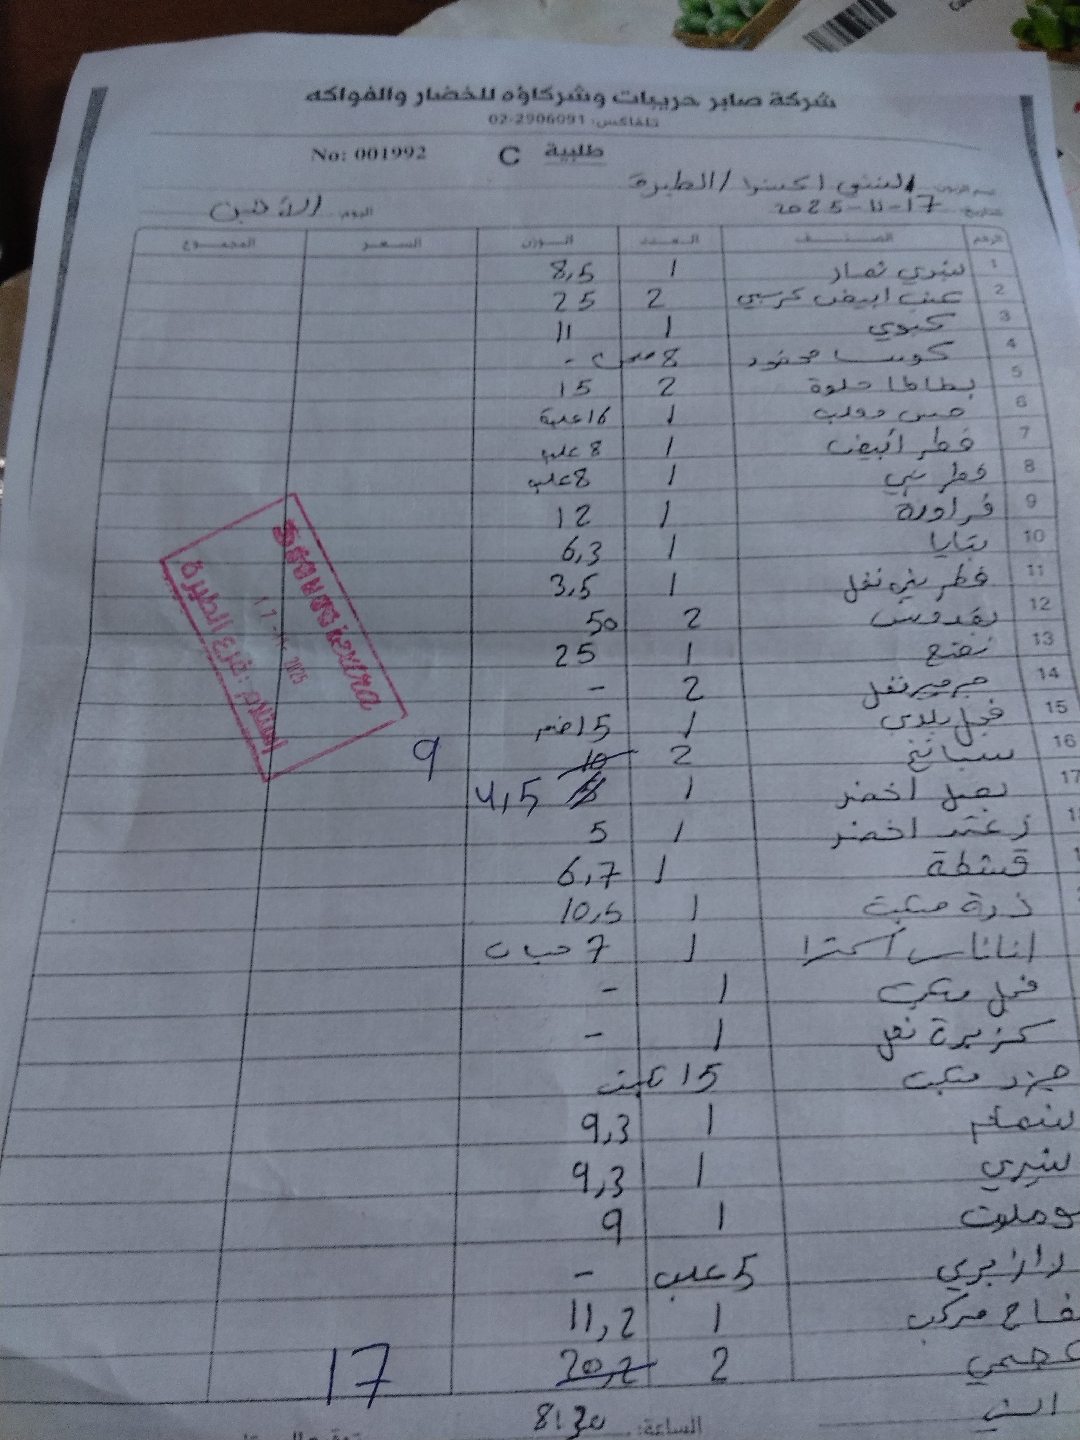 شركة صابر حريبات وشركاؤه للخضار والفواكه
تلفاكس: 02-2906091
طلبية C No: 001992
/ الطيرة
التاريخ: 17-11-2025 اليوم: الاثنين
الرقم الصنف العدد الوزن السعر المجموع
1 شيري 1 8,5
2 عنب ابيض كرسبي 2 25
3 كيوي 1 11
4 كوسا محفور 8 -
5 بطاطا حلوة 2 15
6 خس 1 16 علبة
7 فطر أبيض 1 8 علب
8 فطر بني 1 8 علب
9 فراولة 1 12
10 بابايا 1 6,3
11 فطر بني فل 1 3,5
12 بقدونس 2 50
13 نعنع 1 25
14 جرجير فل 2 -
15 فجل بلدي 1 15 ضم
16 سبانخ 2 10 9
17 بصل اخضر 1 4,5
زعتر اخضر 1 5
قشطة 1 6,7
ذرة مكيت 1 10,5
اناناس اكسترا 1 7 حبات
فجل مكيت 1 -
كزبرة فل 1 -
جزر مكيت 15 مكيت
شمام 1 9,3
1 9,3
بوملوت 1 9
بري 5 علب -
تفاح سركب 1 11,2
2 20,2 17
الساعة: 8:30
استلام: فرع الطيرة
17
2025